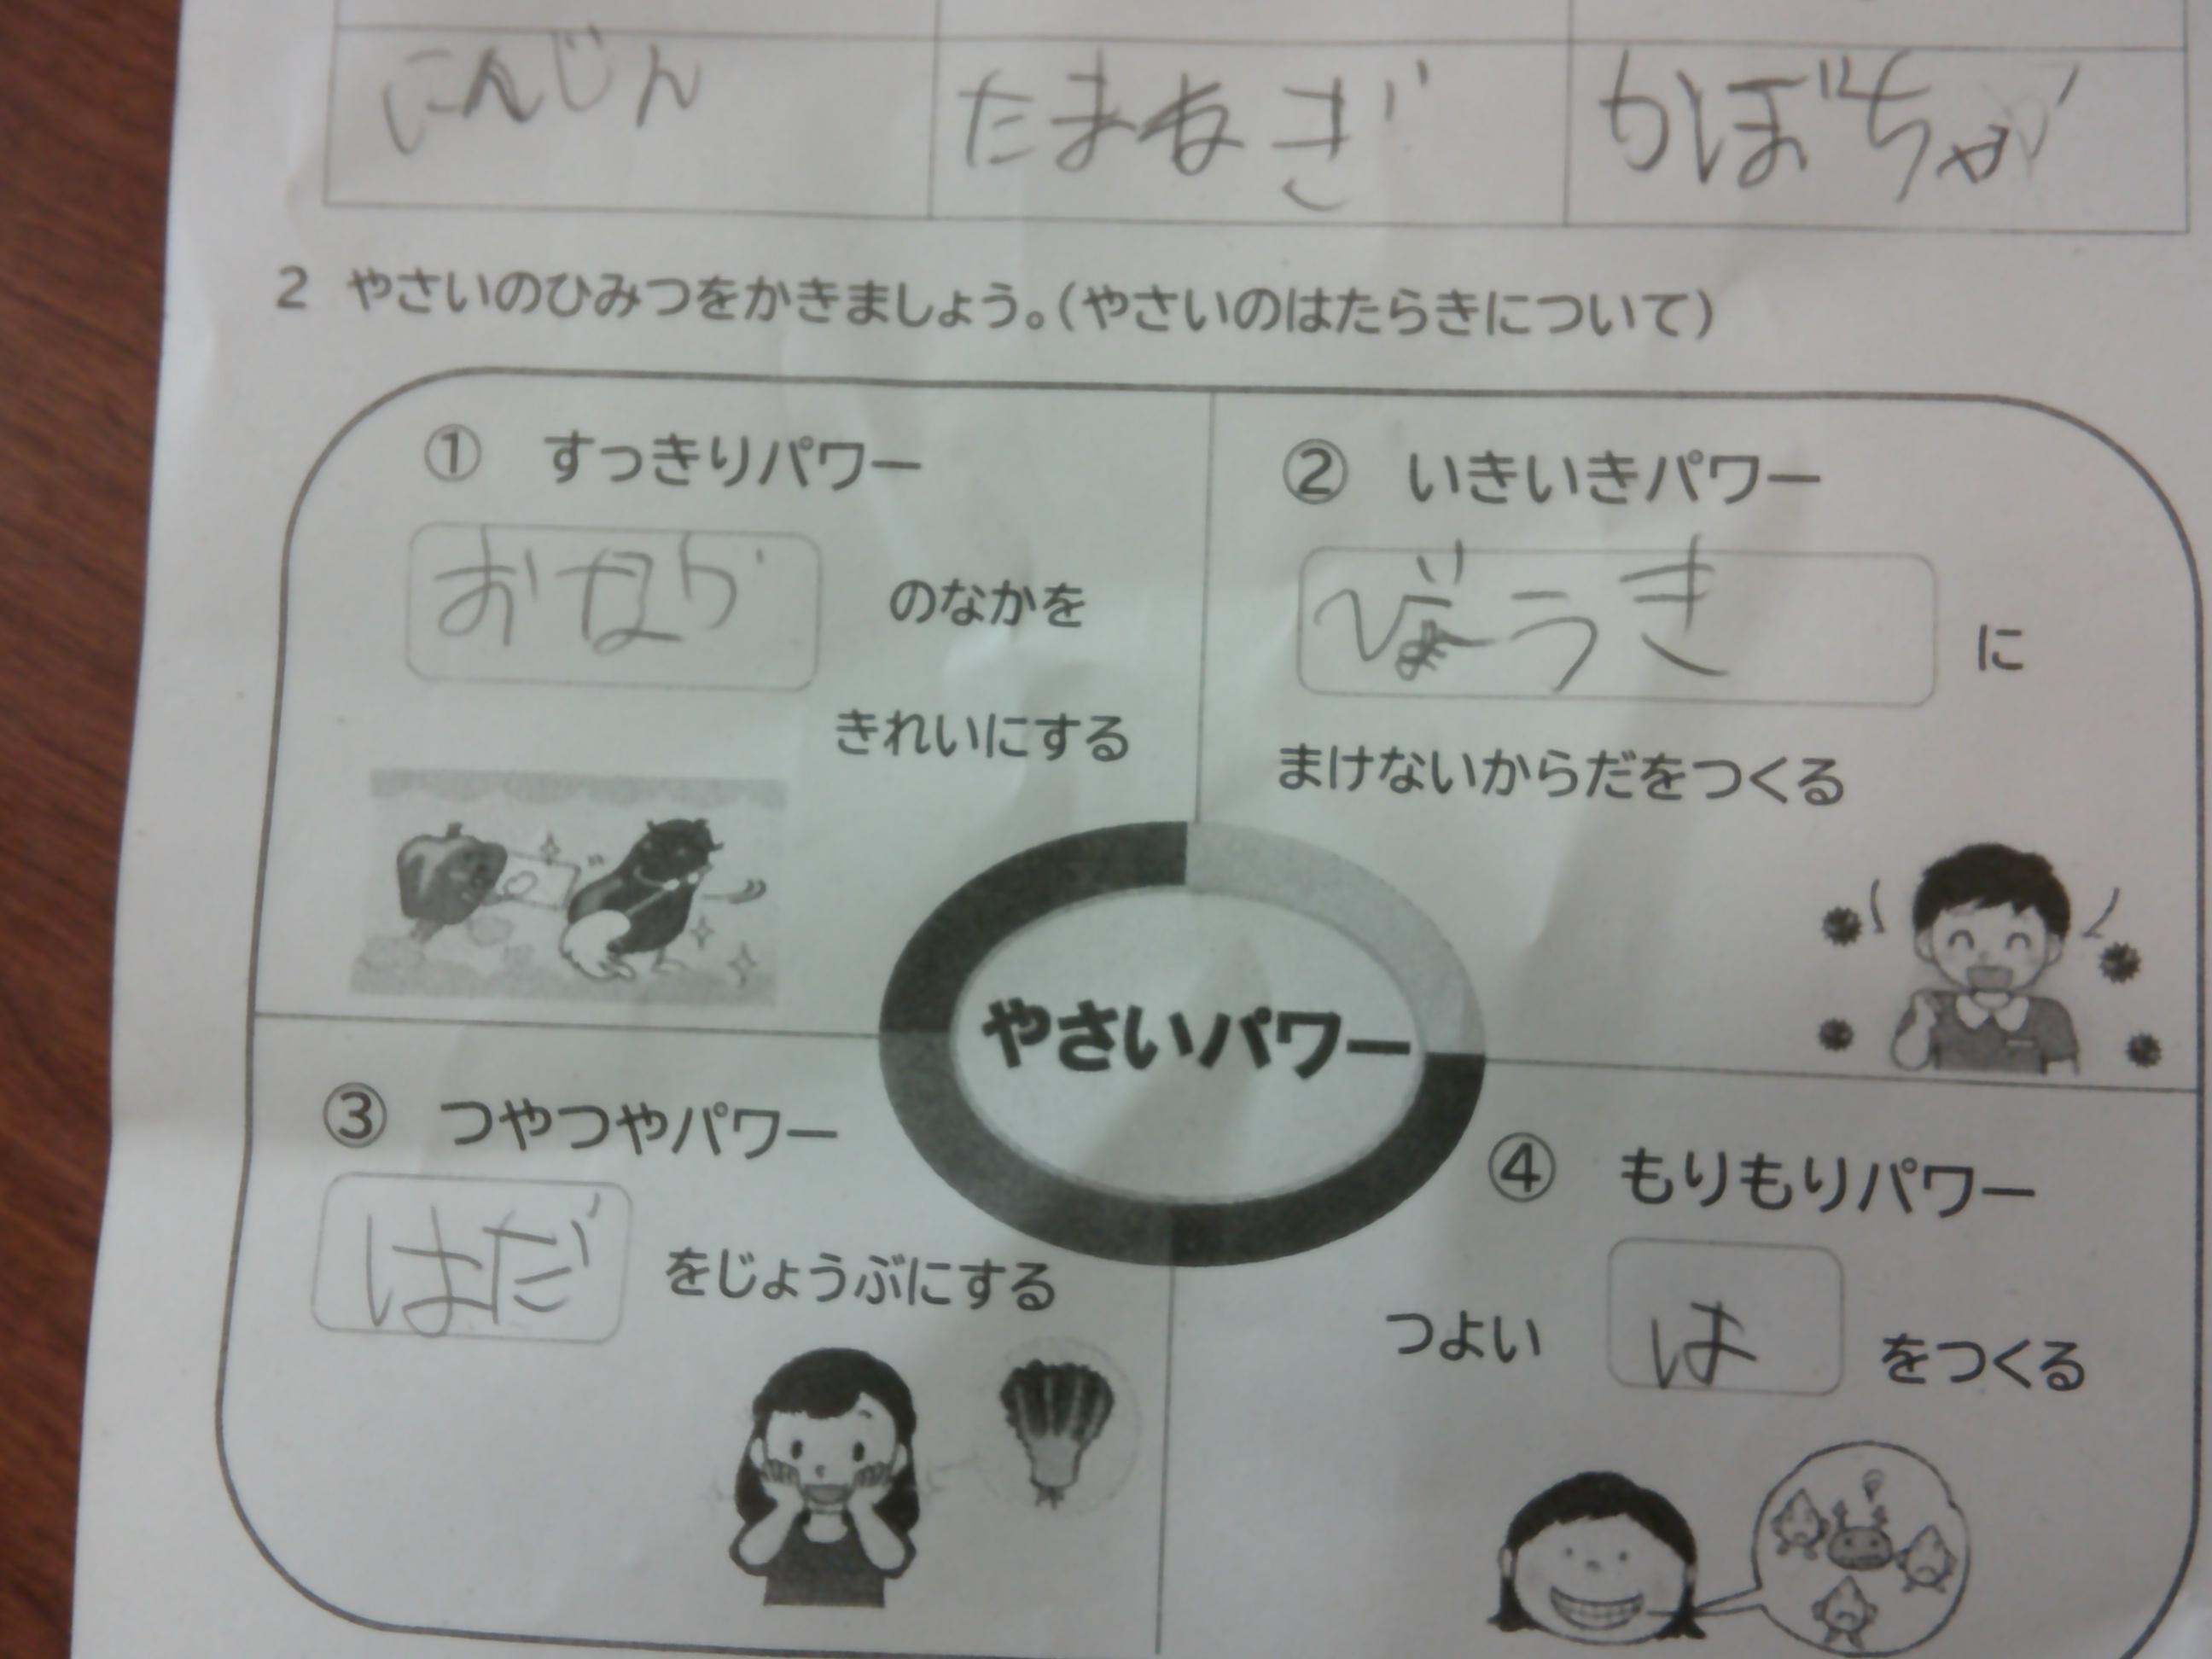 にんじん たまねぎ かぼちゃ
2 やさいのひみつをかきましょう。(やさいのはたらきについて)
① すっきりパワー
おなか のなかを
きれいにする
② いきいきパワー
びょうき に
まけないからだをつくる
やさいパワー
③ つやつやパワー
はだ をじょうぶにする
④ もりもりパワー
つよい は をつくる